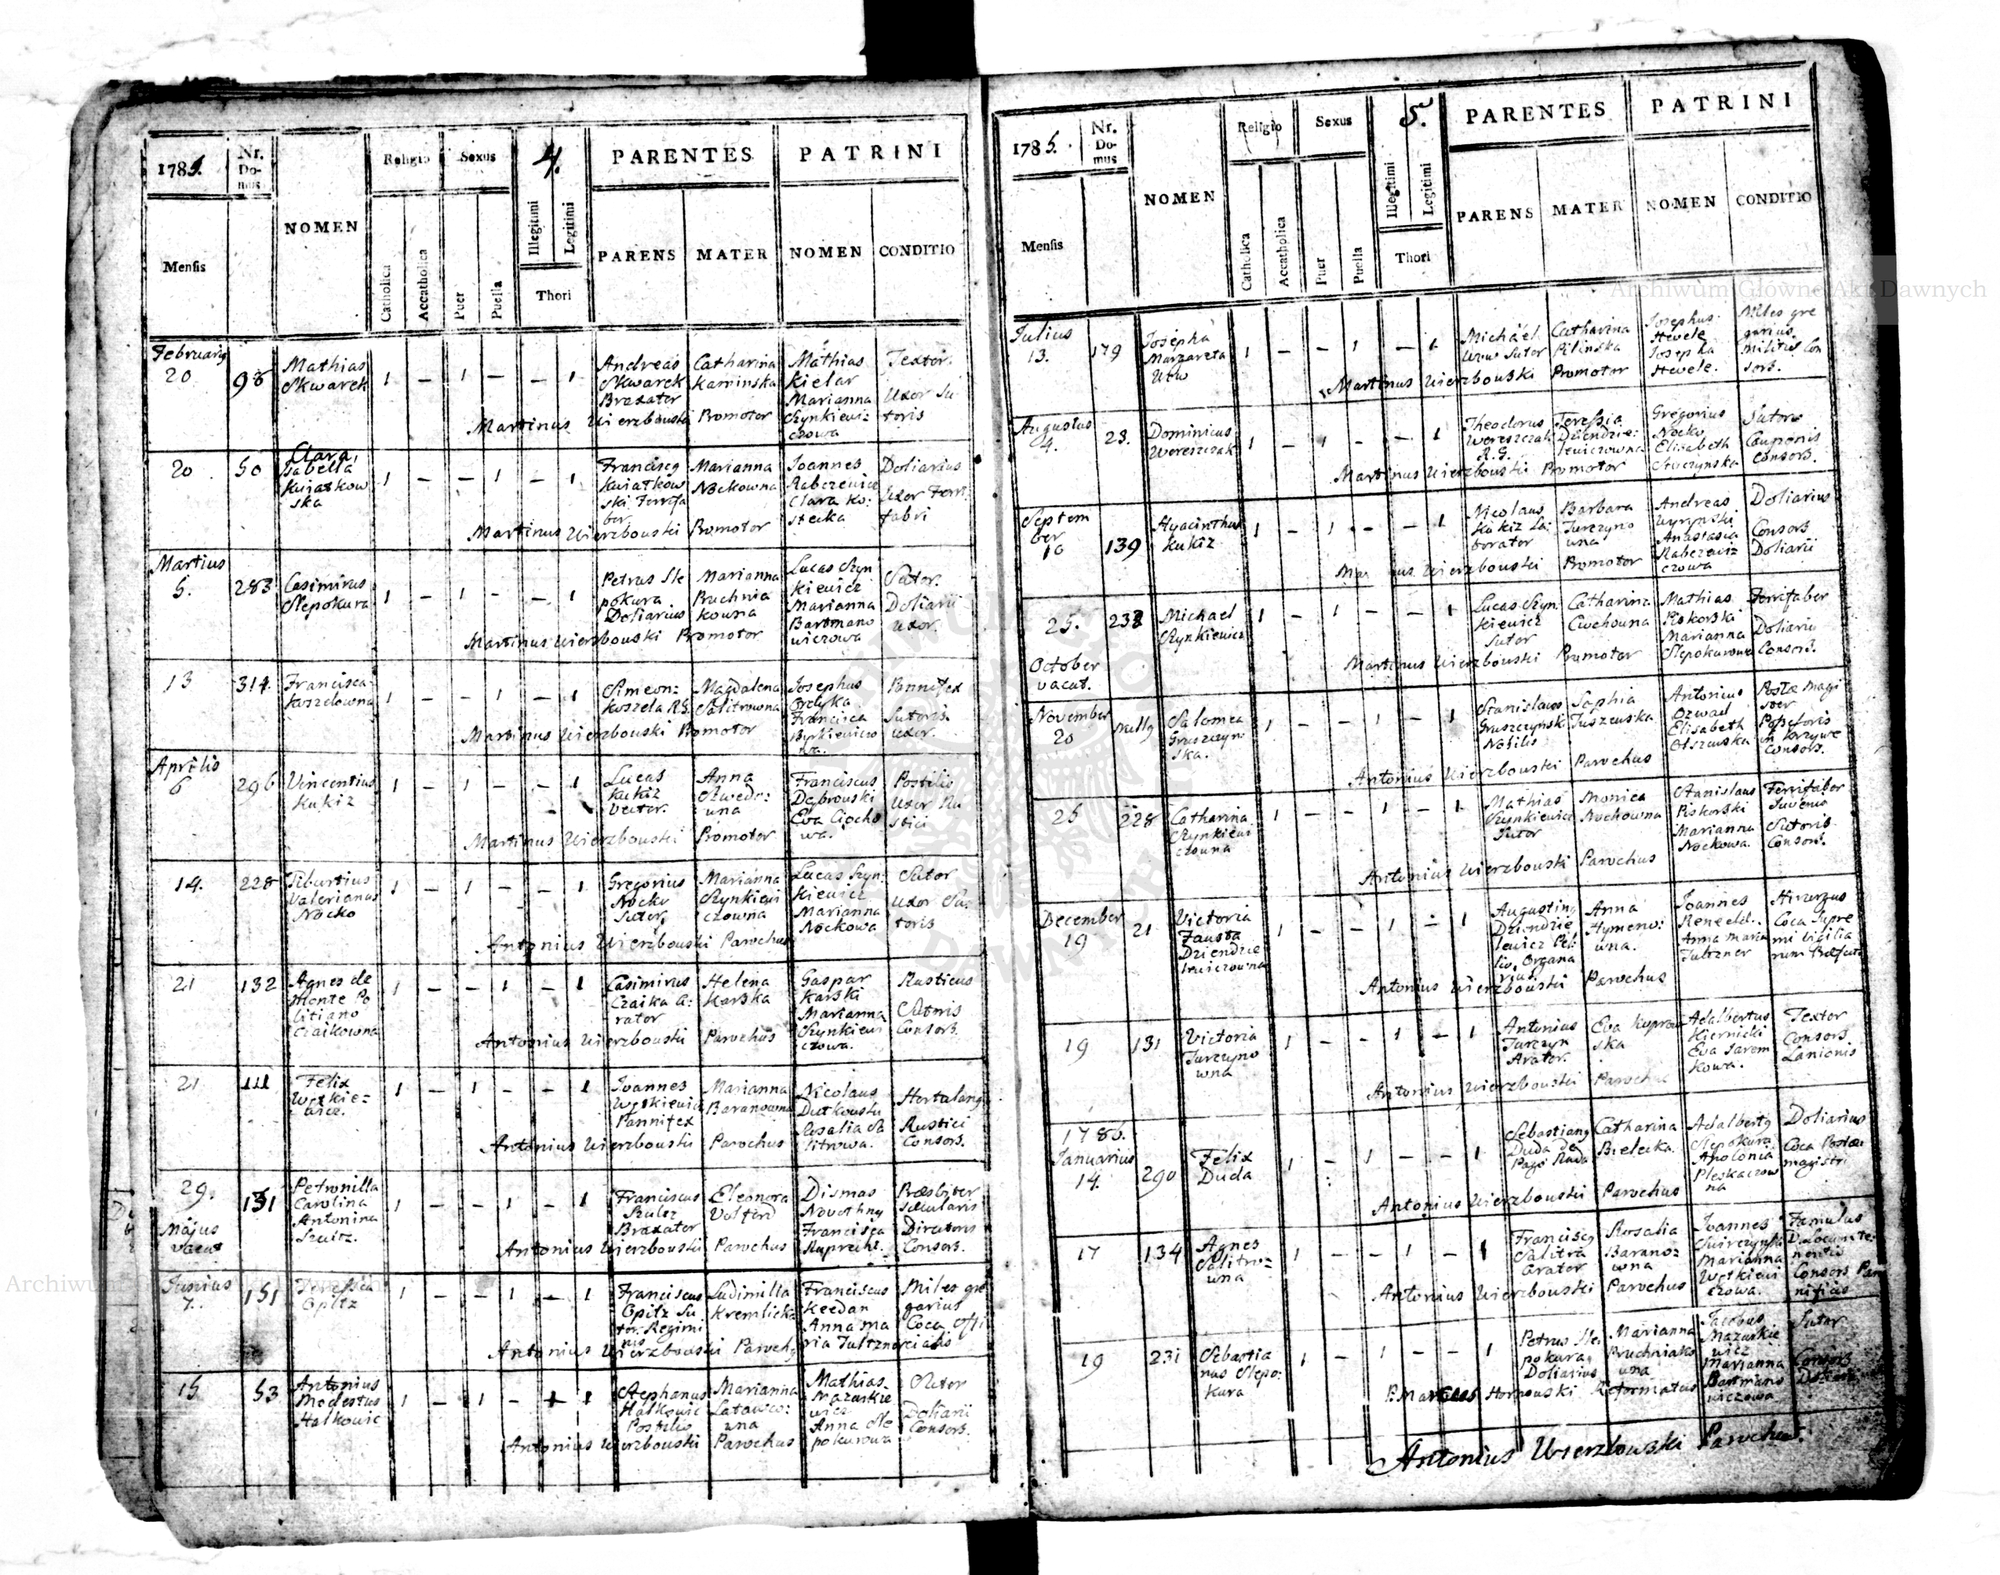 1785.
Nr.
Do-
mus
NOMEN
Religio
Sexus
4.
PARENTES
PATRINI
Mensis
Catholica
Accatholica
Puer
Puella
Illegitimi
Legitimi
Thori
PARENS
MATER
NOMEN
CONDITIO
Februarius
20
98
Mathias
Skwarek
1 – 1 – – 1
Andreas
Skwarek
Braxator
Catharina
Kaminska
Mathias
Kielar
Marianna
Szynkiewi-
czowa
Textor.
Uxor Su
toris
Martinus Wierzbouski Promotor
20
50
Clara,
Isabella
Kwiatkow
ska
1 – – 1 – 1
Kwiatkow
ski Ferrifa
ber
Marianna
Nockowna
Joannes
Rabczewicz
Clara Ko:
stecka
Doliarius
Uxor Ferri
fabri
Martinus Wierzbouski Promotor
Martius
5.
283
Casimirus
Slepokura
1 – 1 – – 1
Petrus Sle
pokura
Doliarius
Marianna
Pruchnia
kowna
Lucas Szyn
kiewicz
Marianna
Bartmano
wiczowa
Sutor.
Doliarii
uxor.
Martinus Wierzbouski Promotor
13
314.
Francisca
Koszelowna
1 – – 1 – 1
Simeon:
Koszela RG.
Magdalena
Salitrowna
Josephus
Francisca
Pannifex
Sutoris
uxor.
Martinus Wierzbouski Promotor
Aprilis
6
296
Vincentius
Kukiz
1 – 1 – – 1
Lucas
Kukiz
Vector.
Anna
Szwedo:
una
Franciscus
Dąbrouski
Eva Ciocho
wa.
Postilio
Uxor Ru
stici
Martinus Wierzbouski Promotor
14.
228
Tiburtius
Valerianus
Nocko
1 – 1 – – 1
Gregorius
Nocko
Sutor,
Marianna
Szynkiewi
czowna
Lucas Szyn:
kiewicz
Marianna
Nockowa
Sutor
uxor Su:
toris
Antonius Wierzbouski Parochus
21
132
Agnes de
Monte Po
litiano
Czaikowna
1 – – 1 – 1
Casimirus
Czaika A:
rator
Helena
Karska
Gaspar
Karski
Marianna
Szynkiewi
czowa.
Rusticus
Sutoris
Consors.
Antonius Wierzbouski Parochus
21
111
Felix
Wętkie=
wicz.
1 – 1 – – 1
Joannes
Wętkiewicz
Pannifex
Marianna
Baranowna
Nicolaus
Dutkouski
Rosalia Sa
litrowa.
Hortulanus
Rustici
Consors.
Antonius Wierzbouski Parochus
29.
151
Petronilla
Carolina
Antonina
Szultz.
1 – – 1 – 1
Franciscus
Szulcz
Braxator
Eleonora
Dismas
Novothny
Francisca
Ruprecht.
Præsbiter
sæcularis
Directoris
Consors.
Antonius Wierzbouski Parochus
Majus
vacat
Junius
7.
151
Teressia
Opitz
1 – – 1 – 1
Franciscus
Opitz Su
tor Regimi
nis
Ludimilla
Kremlicka
Franciscus
Kerdan
Anna ma
ria Tultzner
Miles gre
garius
Coca Offi
cialis
Antonius Wierzbouski Parochus
15
53
Antonius
Modestus
Hałkowic
1 – 1 – + 1
Stephanus
Hałkowic
Postilio
Marianna
Latawco:
wna
Mathias
Mazurkie
wicz
Anna Sle
pokurowa
Sutor
Doliarii
Consors.
Antonius Wierzbouski Parochus
1785.
Nr.
Do-
mus
NOMEN
Religio
Sexus
5.
PARENTES
PATRINI
Mensis
Catholica
Accatholica
Puer
Puella
Illegitimi
Legitimi
Thori
PARENS
MATER
NOMEN
CONDITIO
Julius
13.
179
Josepha
Margareta
1 – – 1 – 1
Michael
Sutor
Catharina
Pilinska
Josephus
Hevele
Josepha
Hevele.
Miles gre
garius
Militis Con
sors.
Martinus Wierzbouski Promotor
Augustus
4.
23.
Dominicus
Wereszczak
1 – 1 – – 1
Theodorus
Wereszczak
R.G.
Teressia
Dziendzie:
lewiczowna
Gregorius
Nocko
Elisabeth
Sutor
Cauponis
Consors.
Martinus Wierzbouski Promotor
Septem
ber
16
139
Hyacinthus
Kukiz
1 – 1 – – 1
Nicolaus
Kukiz La:
borator
Barbara
Turczyno
wna
Andreas
Anastasia
Rabczewic
czowa
Doliarius
Consors
Doliarii
Martinus Wierzbouski Promotor
25.
238
Michael
Szynkiewicz
1 – 1 – – 1
Lucas Szyn
kiewicz
Sutor
Catharina
Cwehowna
Mathias
Piskorski
Marianna
Slepokurowa
Ferrifaber
Doliarii
Consors.
Martinus Wierzbouski Promotor
October
vacat.
November
20
Salomea
Gruszczyn:
ska.
1 – – 1 – 1
Stanislaus
Gruszczynsk
Nobilis
Sophia
Tuszewska
Antonius
Elisabeth
Olszewska
Postæ Magi
ster
Consors.
Antonius Wierzbouski Parochus
25
228
Catharina
Szynkiewi
czowna
1 – – 1 – 1
Mathias
Szynkiewicz
Sutor
Monica
Nockowna
Stanislaus
Piskorski
Marianna
Nockowa.
Ferrifaber
Juvenis
Sutoris
Consors.
Antonius Wierzbouski Parochus
December
19
21
Victoria
Fausta
Dziendzie
lewiczowna
1 – – 1 – 1
Augustinus
Dziendzie
lewicz
Organa
rius
Anna
Hymeno:
wna.
Joannes
Anna Maria
Tultzner
Coca Supre
mi Vigilia
rum Præfecti
Antonius Wierzbouski Parochus
19
131
Victoria
Turczyno
wna
1 – – 1 – 1
Antonius
Turczyn
Arator.
Eva Kuprow
ska
Adalbertus
Kiernicki
Eva Jarem
kowa.
Textor
Consors
Lanionis
Antonius Wierzbouski Parochus
1786.
Januarius
14.
290
Felix
Duda
1 – 1 – – 1
Sebastianus
Duda De
Pago Ruda
Catharina
Bielecka
Adalbertus
Slepokura
Apolonia
Pleskaczow
na
Doliarius
Coca Postæ
magistri
Antonius Wierzbouski Parochus
17
134
Agnes
Salitro=
wna
1 – – 1 – 1
Franciscus
Salitra
Arator
Rosalia
Barano:
wna
Joannes
Swirczynski
Marianna
Wętkiewi
czowa.
Famulus
Consors Pan
nificis
Antonius Wierzbouski Parochus
19
231
Sebastia
nus Slepo:
kura
1 – 1 – – 1
Petrus Sle:
pokura
Doliarius
Marianna
Pruchniako
wna
Jacobus
Mazurkie
wicz
Marianna
Bartmano
wiczowa
Sutor
Consors
P. Marcus Hornouski Reformatus
Antonius Wierzbowski Parochus.
Archiwum Główne Akt Dawnych